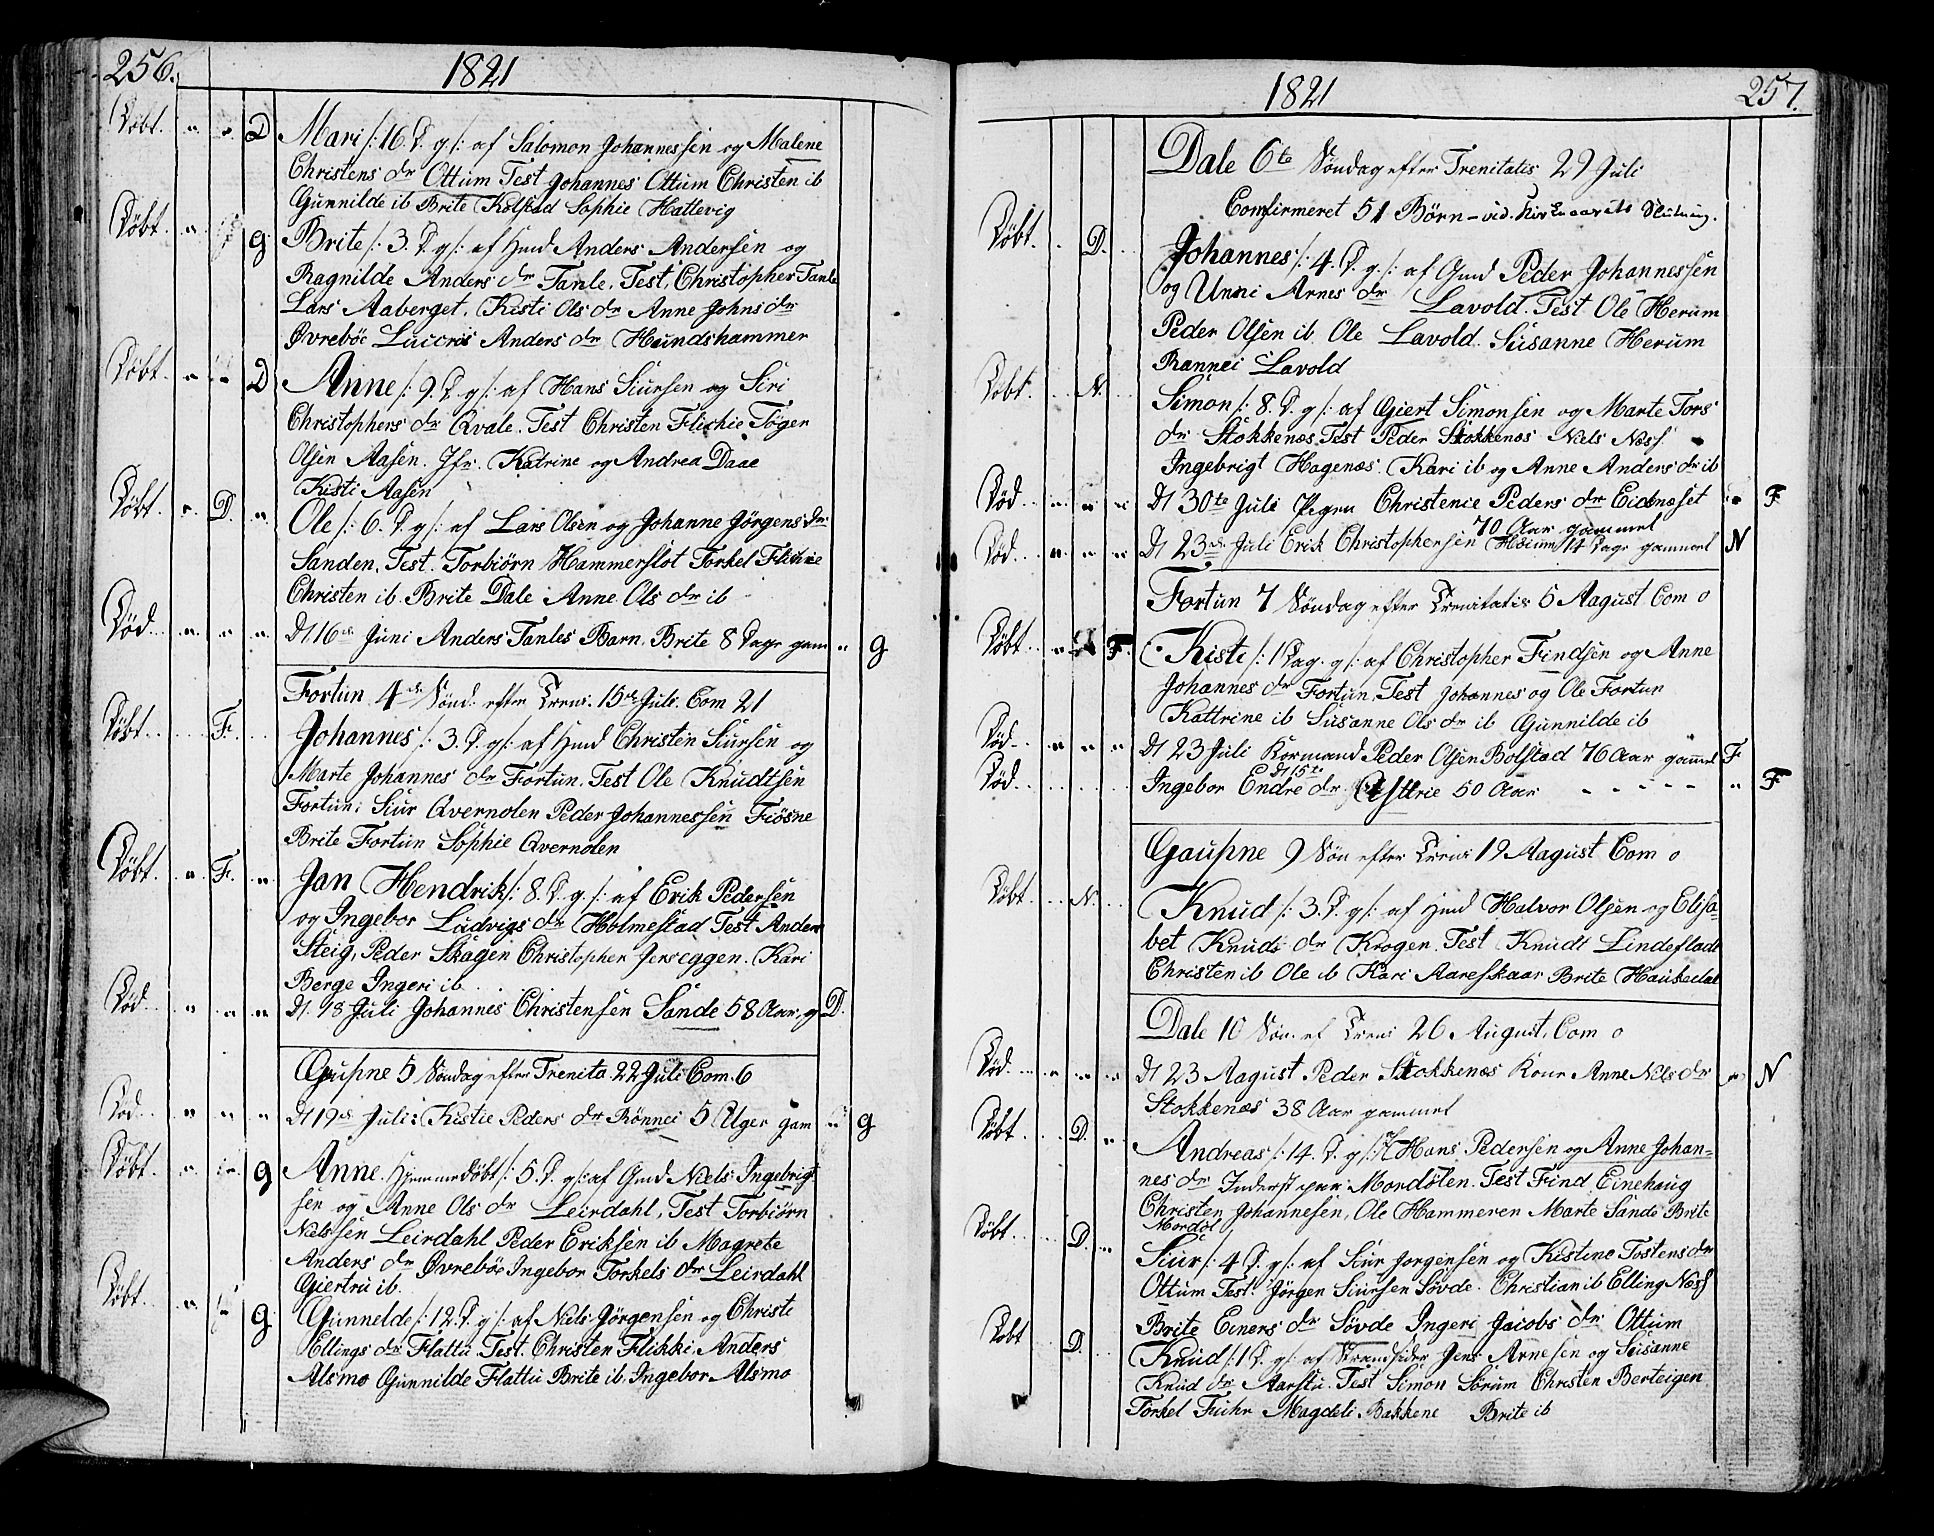 256.
1821
Døbt. D Mari /: 16. D. g /: af Salomon Johannessen og Malene
Christens dr Ottum Test Johannes Ottum Christen ib
Gunnilde ib Brite Kolstad Sophie Hattevig
Døbt. g Brite /: 3. D. g /: af Hmd Anders Andersen og
Ragnilde Anders dr Tanle. Test. Christopher Tanle
Lars Aaberget. Kisti Ols dr Anne Johns dr
Øvrebøe Luccris Anders dr Hundshammer
Døbt. D Anne /: 9. D. g /: af Hans Siursen og Siri
Christophers dr Qvale. Test Christen Flickie Tøger
Olsen Aasen. Jfr. Katrine og Andrea Daae
Kisti Aasen
Døbt. D. Ole /: 6. D. g /: af Lars Olsen og Johanne Jørgens dr
Sanden. Test. Torbiørn Hammerslot Torkel Flickie
Christen ib. Brite Dale Anne Ols dr ib
Død. Dt. 16de Juni Anders Tanles Barn. Brite 8 Dage gam g
Fortun 4de Sønd. efter Treni. 15de Juli. Com 21
Døbt. F. Johannes /: 3. D. g /: af Hmd Christen Siursen og
Marte Johannes dr Fortun. Test Ole Knudtsen
Fortun. Siur Qvernolen Peder Johannessen Fiøsne
Brite Fortun Sophie Qvernolen
Døbt. F. Jan Hendrik /: 8. D. g. /: af Erik Pedersen
og Ingebor Ludvigs dr Holmestad Test Anders
Steig, Peder Skagen Christopher Jerseggen. Kari
Berge Ingeri ib.
Død. Dt. 18 Juli Johannes Christensen Sande 58 Aar. g D.
Gaupne 5 Søndag efter Trenita. 22 Juli Com. 6
Død. Dt 19de Juli: Kistie Peders dr Rønnei 5 Uger gam g
Døbt. g Anne. Hjemmedøbt /: 5. D. g /: af Gmd Niels Ingebrigt
sen og Anne Ols dr Leirdahl, Test Torbiørn
Nielssen Leirdahl Peder Eriksen ib Magrete
Anders dr Øvrebøe Ingebor Torkels dr Leirdahl
Giertru ib.
Døbt. g Gunnelde /: 12. D. g /: af Niels Jørgensen og Christi
Ellings dr Flattu. Test. Christen Flikki. Anders
Alsmo Gunnilde Flattu Brite ib. Ingebor Alsmo
1821
257.
Dale 6te Søndag efter Trenitatis 29 Juli
Comfirmeret 51 Børn - vid. Kirkeaarets Slutning.
Døbt. D. Johannes /: 4. D. g. /: af Gmd Peder Johannessen
og Unni Arnes dr Lavold. Test Ole Herum
Peder Olsen ib. Ole Lavold. Susanne Herum
Rannei Lavold
Døbt. N. Simon /: 8. D. g /: af Giert Simonsen og Marte Tors
dr Stokkenæs. Test Peder Stokkenæs Niels Næss.
Ingebrigt Hagenæs. Kari ib og Anne Anders dr ib
Død. Dt 30te Juli Pigen Christence Peders dr Eidsneset F
70 Aar gammel
Død. Dt 23de Juli Erik Christophersen Høium 14 Dage gammel N
Fortun 7 Søndag efter Trenitatis 5 Aagust. Com 0
Døbt. F. Kiste /: 1 Dag. g /: af Christopher Findsen og Anne
Johannes dr Fortun. Test Johannes og Ole Fortun
Kattrine ib Susanne Ols dr ib Gunnilde ib
Død. Dt 23 Juli Kormand Peder Olsen Bolstad 76 Aar gammel F
Dt 15te
Død. Ingebor Endre dr 50 Aar F
Gaupne 9 Søn efter Treni 19 Aagust Com 0
Døbt. N. Knud /: 3. D. g /: af Hmd Halvor Olsen og Elisa-
bet Knuds dr Krogen. Test Knudt Lindefladt
Christen ib Ole ib Kari Aaresskaar Brite Haukedal
Dale 10 Søn. ef Treni 26 August. Com 0
Død. Dt 23 Aagust Peder Stokkenæs Kone Anne Niels dr N
Stokkenæs 38 Aar gammel
Døbt. D. Andreas /: 14. D. g /: af Hans Pedersen og Anne Johan-
nes dr Inderst paa Mordølen. Test Find Einehaug
Christen Johannesen, Ole Hammeren Marte Sande Brite
Mordøl
Døbt. D. Siur /: 4 D. g /: af Siur Jorgensen og Kistine Tostens dr
Ottum Test. Jörgen Siursen Søvde. Christian ib Elling Næss
Brite Einers dr Søvde Ingeri Jacobs dr Ottum
Døbt D. Knud /: 1 D. g /: af Strandsider Jens Arnesen og Susanne
Knud dr Aarstu. Test Simon Sørum Christen Berteigen
Torkel Fuhr Magdeli Bakkene Brite ib